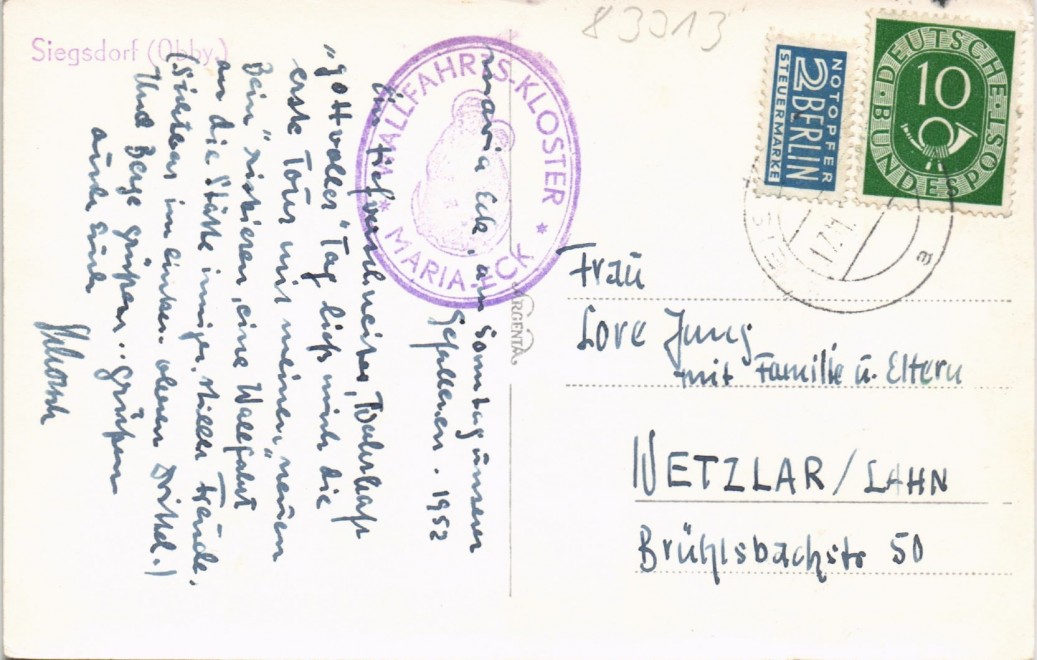 83313
Siegsdorf (Obby.)
WALLFAHRTS-KLOSTER
* MARIA-ECK *
NOTOPFER
2 BERLIN
STEUERMARKE
DEUTSCHE
BUNDESPOST
10
a
ARGENTA
Maria Eck, am Sonntag unserer
Gefallenen. 1952
Ein tief verschneiter, wahrhaft
"gottvoller" Tag ließ mich die
erste Tour mit meinem "neuen
Bein" riskieren, eine Wallfahrt
an die Stätte inniger, stiller Freude.
(Sichtbar im linken oberen Drittel.)
Und Berge grüßen.. grüßen
auch Euch
Frau
Lore Jung
mit Familie u. Eltern
WETZLAR/LAHN
Brühlsbachstr 50